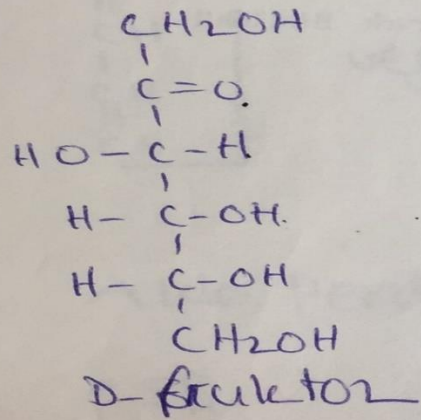 CH2OH
C=O.
HO-C-H
H-C-OH.
H-C-OH
CH2OH
D-fruktoz